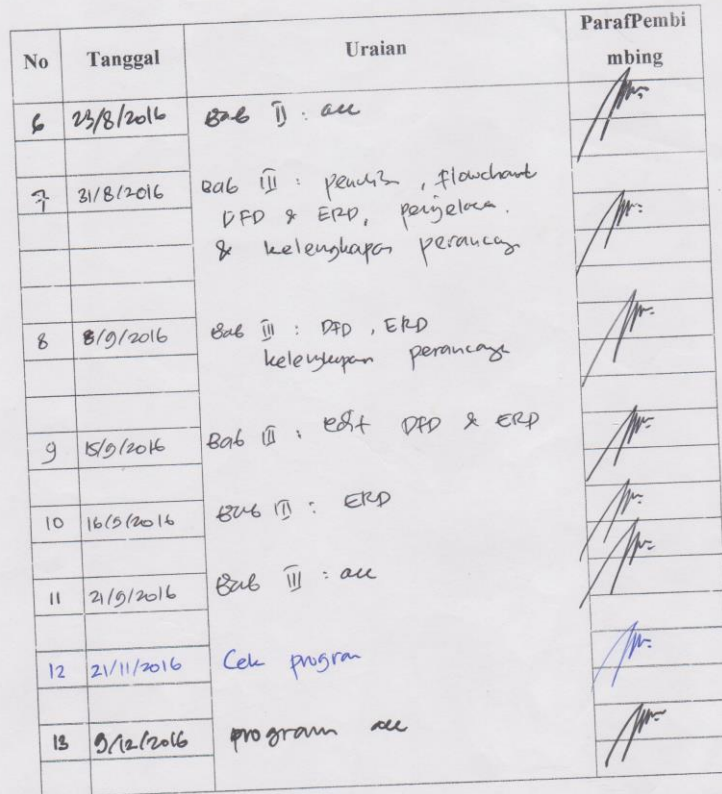 No Tanggal Uraian ParafPembi
mbing
6 23/8/2016 Bab II : acc
7 31/8/2016 Bab III : penulis , flowchart
DFD & ERD, penjelasa.
& kelengkapan perancang
8 8/9/2016 Bab III : DFD , ERD
kelengkapan perancang
9 15/9/2016 Bab III : edit DFD & ERD
10 16/9/2016 Bab III : ERD
11 21/9/2016 Bab III : acc
12 21/11/2016 Cek program
13 9/12/2016 program acc